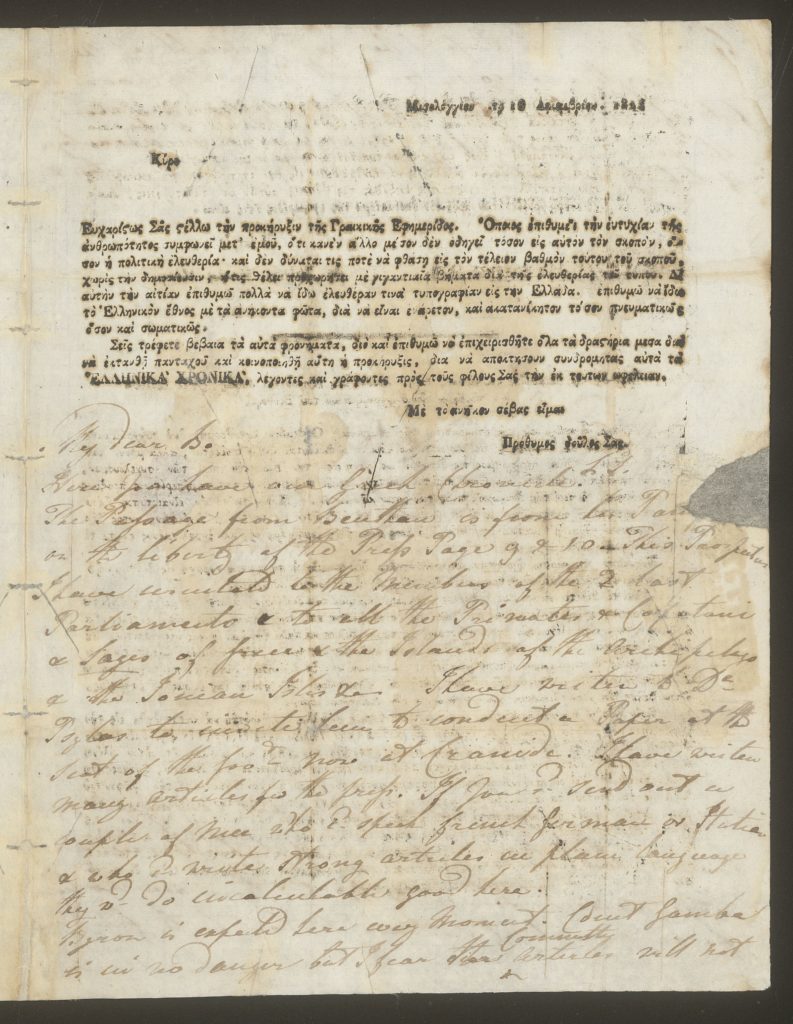 Μισολόγγιον τῃ 18 Δεκεμβρίου. 1823
Κύριε
Εὐχαρίςως Σᾶς ςέλλω τὴν προκήρυξιν τῆς Γραικικῆς Ἐφημερίδος. Ὅποιος ἐπιθυμεῖ τὴν εὐτυχίαν τῆς
ἀνθρωπότητος συμφωνεῖ μετ' ἐμοῦ, ὅτι κανὲν ἄλλο μέσον δὲν ὁδηγεῖ τόσον εἰς αὐτὸν τὸν σκοπὸν, ὅ-
σον ἡ πολιτικὴ ἐλευθερία· καὶ δὲν δύναταί τις ποτὲ νὰ φθάσῃ εἰς τὸν τέλειον βαθμὸν τούτου τοῦ σκοποῦ,
χωρὶς τὴν δημοσίευσιν, ἥτις θέλει προχωρήσει μὲ γιγαντιαῖα βήματα διὰ τῆς ἐλευθερίας τοῦ τύπου. Δι'
αὐτὴν τὴν αἰτίαν ἐπιθυμῶ πολλὰ νὰ ἰδῶ ἐλευθέραν τινὰ τυπογραφίαν εἰς τὴν Ἑλλάδα. ἐπιθυμῶ νὰ ἰδῶ
τὸ Ἑλληνικὸν ἔθνος μὲ τὰ ἀνήκοντα φῶτα, διὰ νὰ εἶναι ἐνάρετον, καὶ ἀκατανίκητον τόσον πνευματικῶς
ὅσον καὶ σωματικῶς.
Σεῖς τρέφετε βέβαια τὰ αὐτὰ φρονήματα, διὸ καὶ ἐπιθυμῶ νὰ ἐπιχειρισθῆτε ὅλα τὰ δραςήρια μέσα διὰ
νὰ ἐκτανθῇ πανταχοῦ καὶ κοινοποιηθῇ αὕτη ἡ προκήρυξις, διὰ νὰ ἀποκτήσουν συνδρομητὰς αὐτὰ τὰ
ἙΛΛΗΝΙΚᾺ ΧΡΟΝΙΚᾺ, λέγοντες καὶ γράφοντες πρὸς τοὺς φίλους Σας τὴν ἐκ τούτων ὠφέλειαν.
Μὲ τὸ ἀνῆκον σέβας εἶμαι
Πρόθυμος δοῦλος Σας.
My dear Bo
Here you have our Greek Chronicle.
The Passage from Bentham is from his
on the liberty of the Press Page 9 & 10 This Prospectus
I have circulated to the Members of the 2 last
Parliaments & to all the Primates & Captains
& Sages of Greece & the Islands of the Archipelago
& the Ionian Isles &c I have written to Dr
to invite him to conduct a Paper at the
Seat of the Govt now at Cranidi. I have written
many articles for the press. If You cd send out a
couple of Men who cd speak french German or Italian
& who cd write strong articles in plain language
they wd do incalculable good here.
Byron is expected here every Moment. Count Gamba
is in no danger but I fear the Committee articles will not